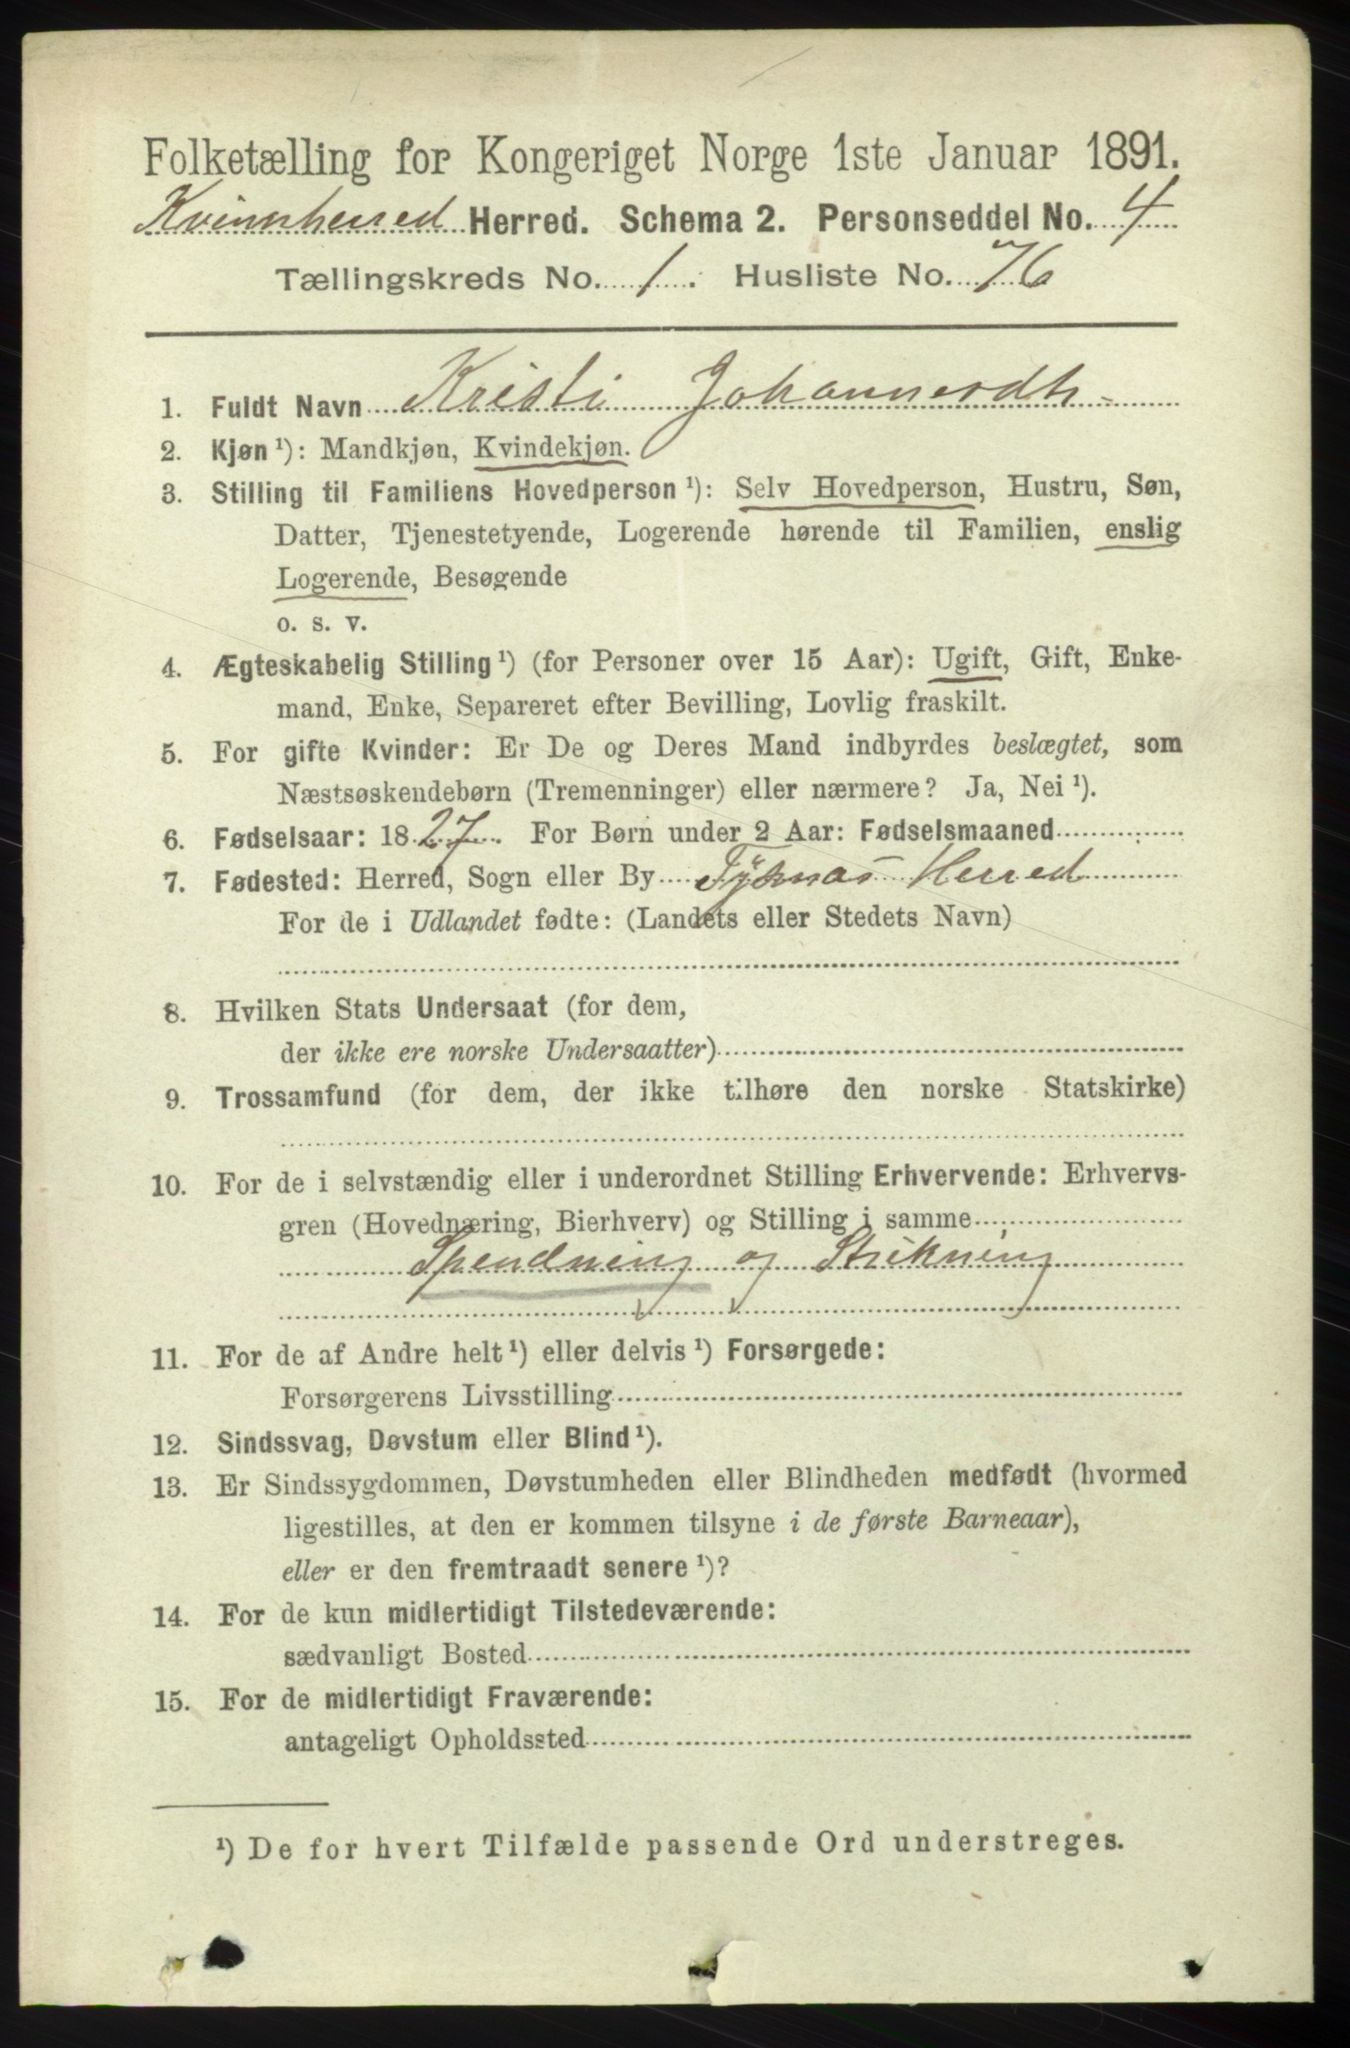 Folketælling for Kongeriget Norge 1ste Januar 1891.
Kvinnherred Herred. Schema 2. Personseddel No. 4
Tællingskreds No. 1. Husliste No. 76
1. Fuldt Navn Kristi Johannesdtr
2. Kjøn ¹): Mandkjøn, Kvindekjøn.
3. Stilling til Familiens Hovedperson ¹): Selv Hovedperson, Hustru, Søn,
Datter, Tjenestetyende, Logerende hørende til Familien, enslig
Logerende, Besøgende
o. s. v.
4. Ægteskabelig Stilling ¹) (for Personer over 15 Aar): Ugift, Gift, Enke-
mand, Enke, Separeret efter Bevilling, Lovlig fraskilt.
5. For gifte Kvinder: Er De og Deres Mand indbyrdes beslægtet, som
Næstsøskendebørn (Tremenninger) eller nærmere? Ja, Nei ¹).
6. Fødselsaar: 1827. For Børn under 2 Aar: Fødselsmaaned
7. Fødested: Herred, Sogn eller By Tysnæs Herred
For de i Udlandet fødte: (Landets eller Stedets Navn)
8. Hvilken Stats Undersaat (for dem,
der ikke ere norske Undersaatter)
9. Trossamfund (for dem, der ikke tilhøre den norske Statskirke)
10. For de i selvstændig eller i underordnet Stilling Erhvervende: Erhvervs-
gren (Hovednæring, Bierhverv) og Stilling i samme
Spendning og Strikning
11. For de af Andre helt ¹) eller delvis ¹) Forsørgede:
Forsørgerens Livsstilling
12. Sindssvag, Døvstum eller Blind ¹).
13. Er Sindssygdommen, Døvstumheden eller Blindheden medfødt (hvormed
ligestilles, at den er kommen tilsyne i de første Barneaar),
eller er den fremtraadt senere ¹)?
14. For de kun midlertidigt Tilstedeværende:
sædvanligt Bosted
15. For de midlertidigt Fraværende:
antageligt Opholdssted
¹) De for hvert Tilfælde passende Ord understreges.